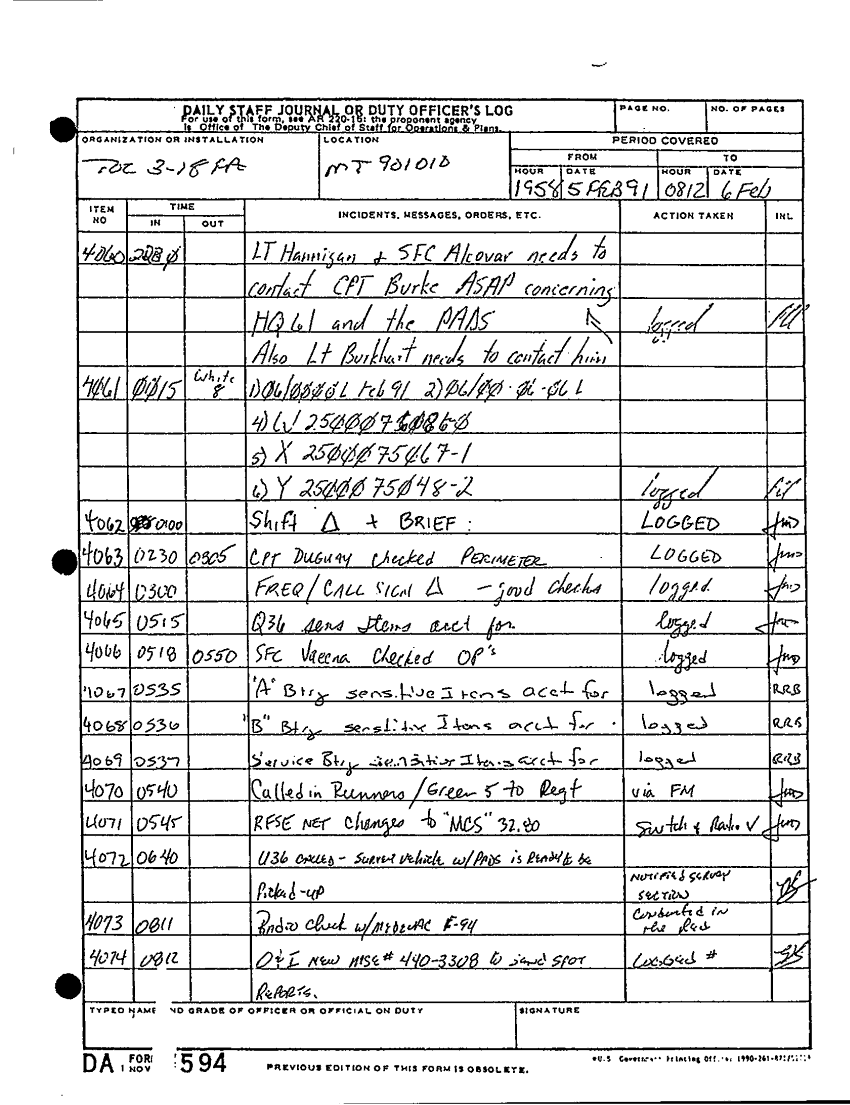 DAILY STAFF JOURNAL OR DUTY OFFICER'S LOG
For use of this form, see AR 220-15: the proponent agency
is Office of The Deputy Chief of Staff for Operations & Plans.
PAGE NO. NO. OF PAGES
ORGANIZATION OR INSTALLATION LOCATION PERIOD COVERED
TOC 3-18 FA MT 901010
FROM TO
HOUR DATE HOUR DATE
1958 5 FEB 91 0812 6 Feb
ITEM NO TIME IN OUT INCIDENTS, MESSAGES, ORDERS, ETC. ACTION TAKEN INL
4060 LT Hannigan & SFC Alcovar needs to
contact CPT Burke ASAP concerning
HQ61 and the PADS logged
Also Lt Burkhart needs to contact him
4061 0015 White 8 1) 06/0000L Feb 91 2) 06/00-06-06 L
4) W
5) X 2500075067-1
6) Y 2500075048-2 logged
4062 0100 Shift Δ + BRIEF: LOGGED
4063 0230 0305 CPT DUGUAY checked PERIMETER LOGGED
4064 0300 FREQ/CALL SIGN Δ - good checks logged.
4065 0515 Q36 sens Items acct for. logged
4066 0518 0550 SFC checked OP's logged
4067 0535 "A" Btry sensitive Items acct for logged RRB
4068 0536 "B" Btry sensitive Items acct for. logged RRB
4069 0537 Service Btry sensitive Items acct for logged RRB
4070 0540 Called in Runners/Green 5 to Regt via FM
4071 0545 RFSE NET changes to "MCS" 32.80 Switch & Radio √
4072 0640 U36 CALLED - SURVEY Vehicle w/PADS is READY to be NOTIFIED SURVEY
Picked-up SECTION
4073 0811 Radio Check w/MEDEVAC F-94 Conducted in
the
4074 0812 O&I NEW MSE# 440-3308 to send SPOT Logged #
REPORTS.
TYPED NAME ND GRADE OF OFFICER OR OFFICIAL ON DUTY SIGNATURE
DA FORM 1 NOV 1594 PREVIOUS EDITION OF THIS FORM IS OBSOLETE. U.S. Government Printing Office: 1990-261-